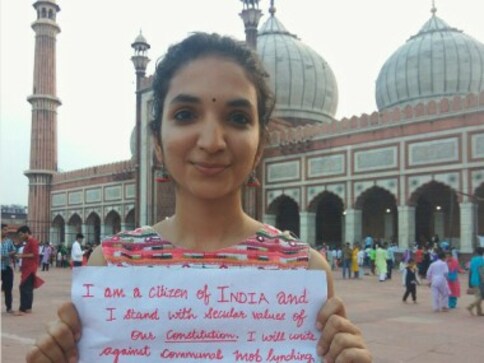 I am a citizen of INDIA and
I stand with secular values of
our Constitution. I will unite
against communal mob lynching